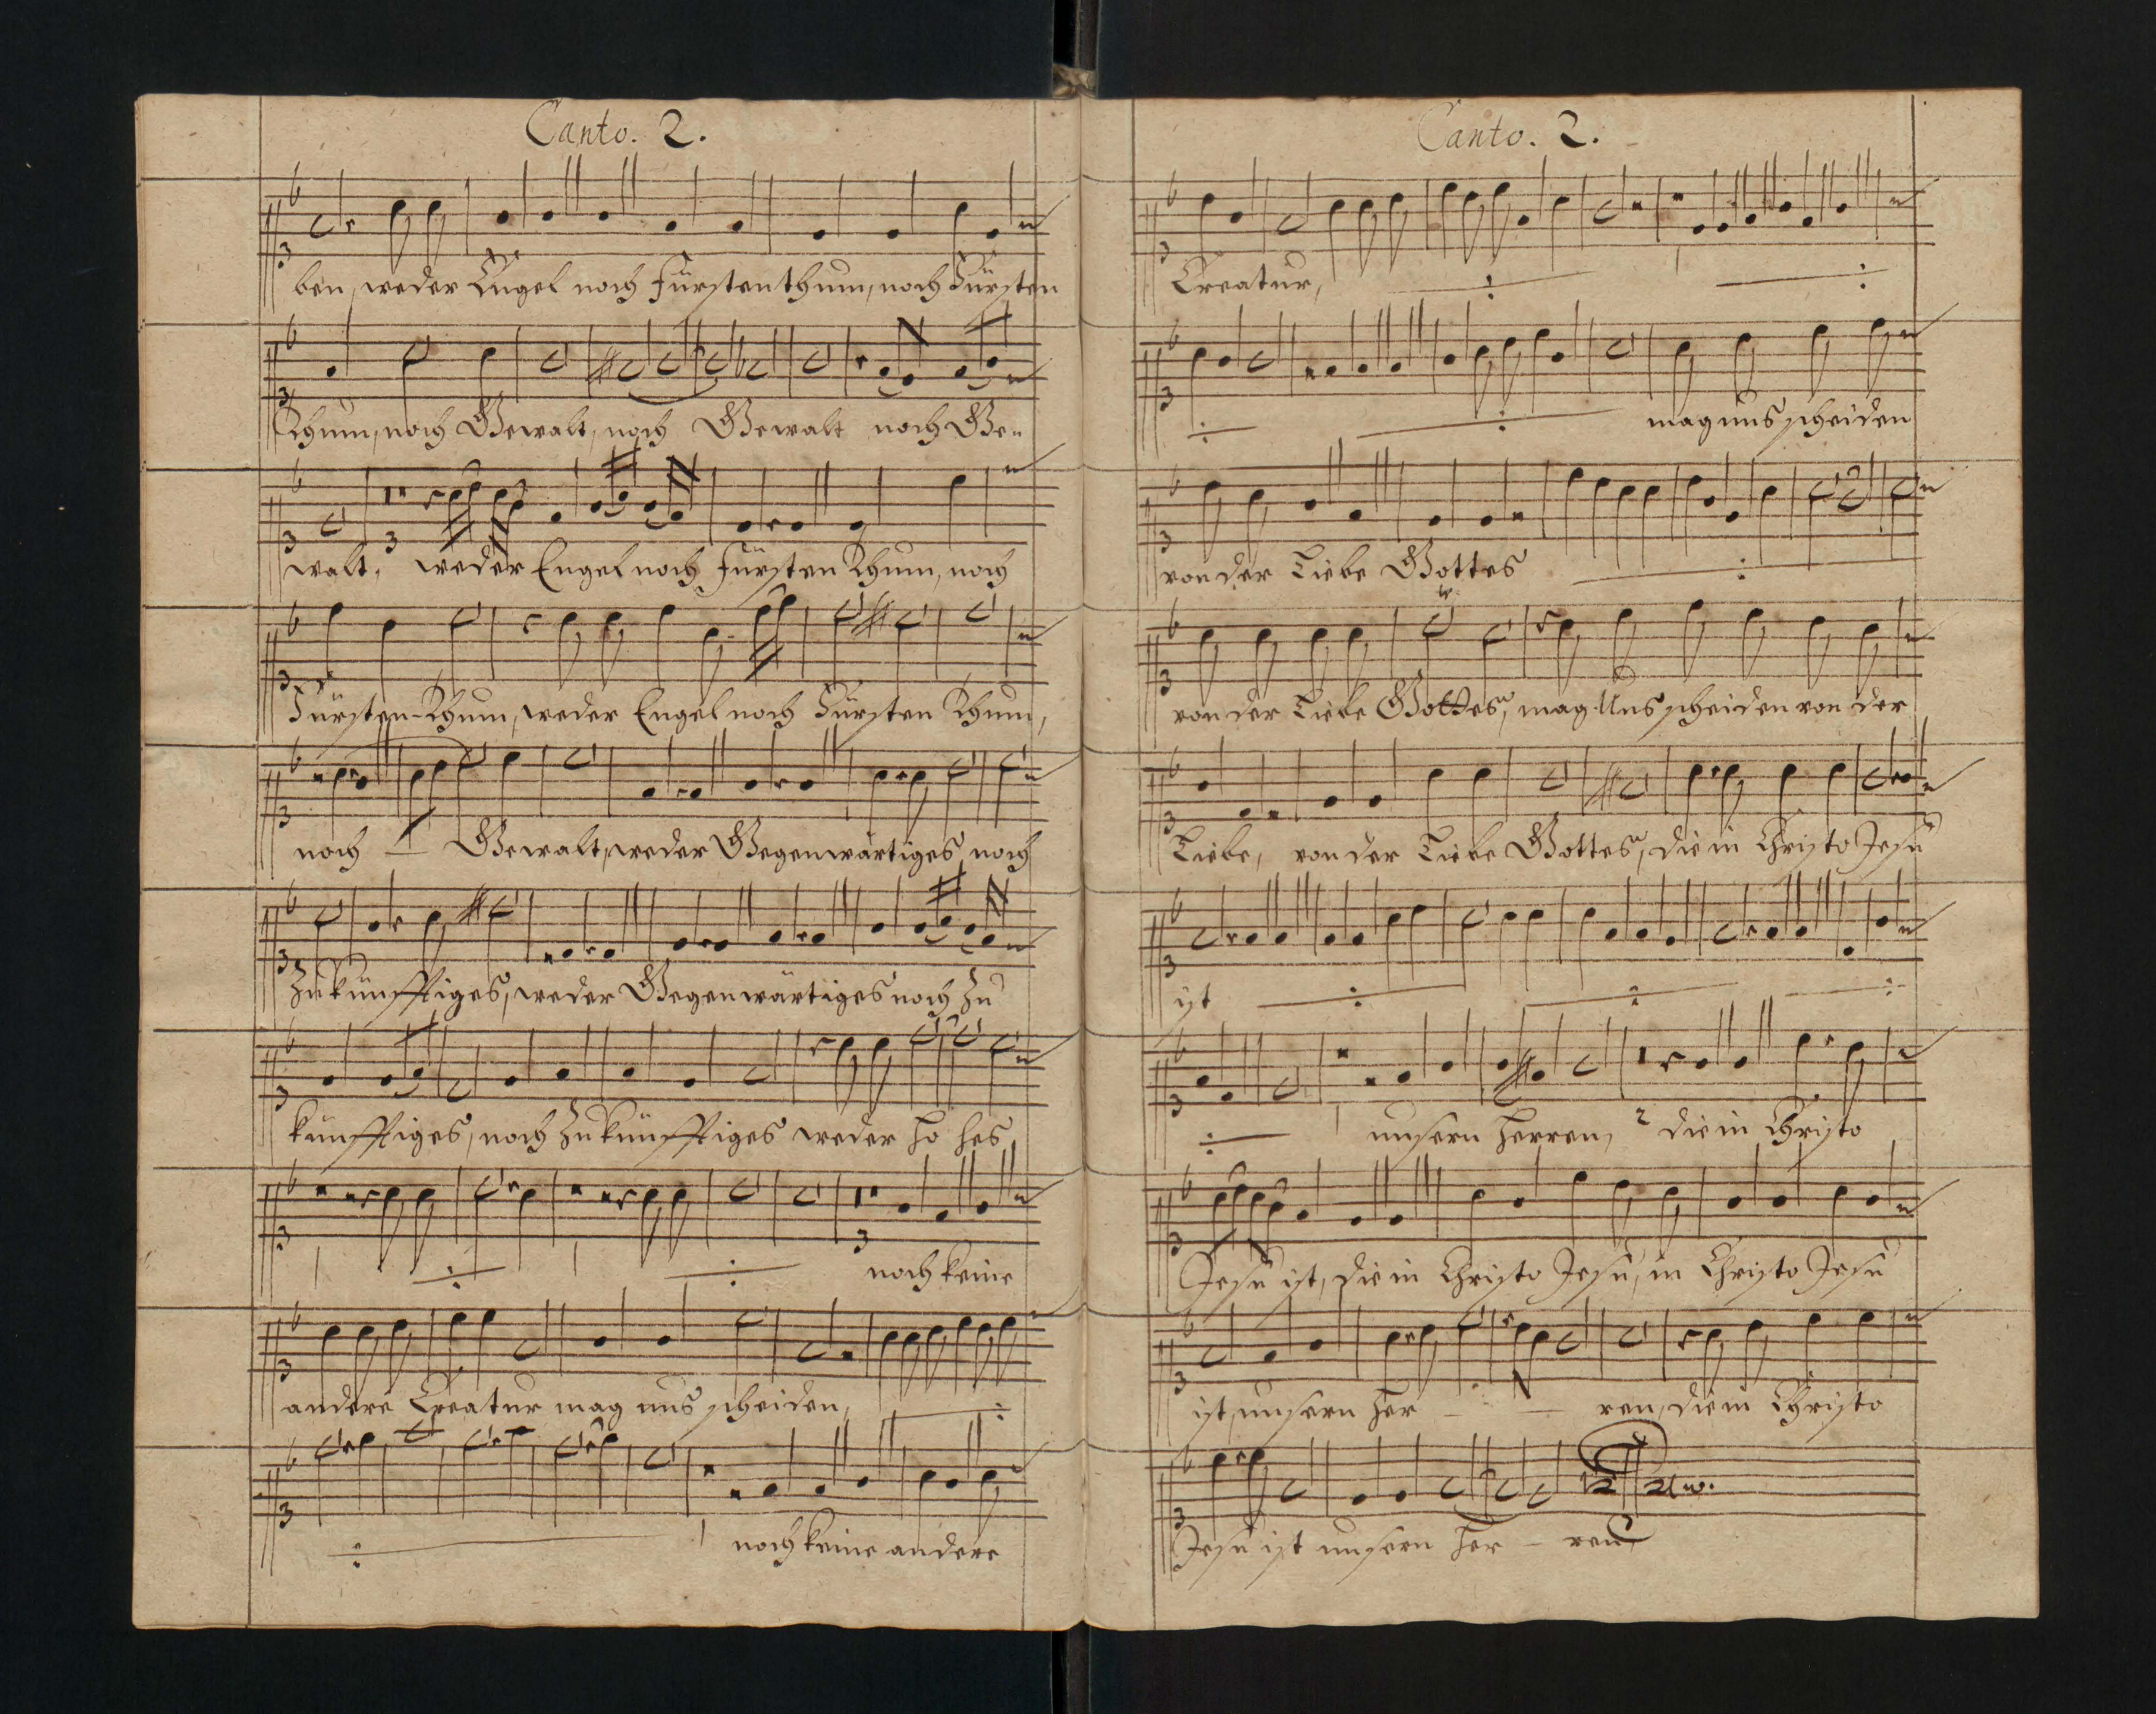 Canto. 2.
ben, weder Engel noch Fürstenthum, noch Fürsten
Thum, noch Gewalt, noch Gewalt noch Ge-
walt, weder Engel noch Fürsten Thum, noch
Fürsten-Thum, weder Engel noch Fürsten Thum,
noch Gewalt, weder Gegenwärtiges noch
Zukünfftiges, weder Gegenwärtiges noch Zu
künfftiges, noch Zukünfftiges weder ho hes
3
noch keine
andere Creatur mag uns scheiden,
noch keine andere
Canto. 2.
Creatur,
mag uns scheiden
von der Liebe Gottes
von der Liebe Gottes, mag Uns scheiden von der
Liebe, von der Liebe Gottes, die in Christo Jesu
ist
unsern Herren, die in Christo
Jesu ist, die in Christo Jesu, in Christo Jesu
ist, unsern Her - - ren, die in Christo
Jesu ist unsern Her - ren,